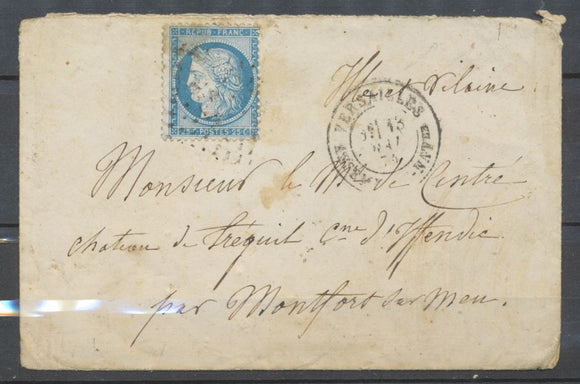 REPUB. FRANC.
25c POSTES 25c
Ille et Vilaine
VERSAILLES
Monsieur le Mis de Cintré
chateau de Tréguil cne d'Iffendic
par Montfort sur Meu.